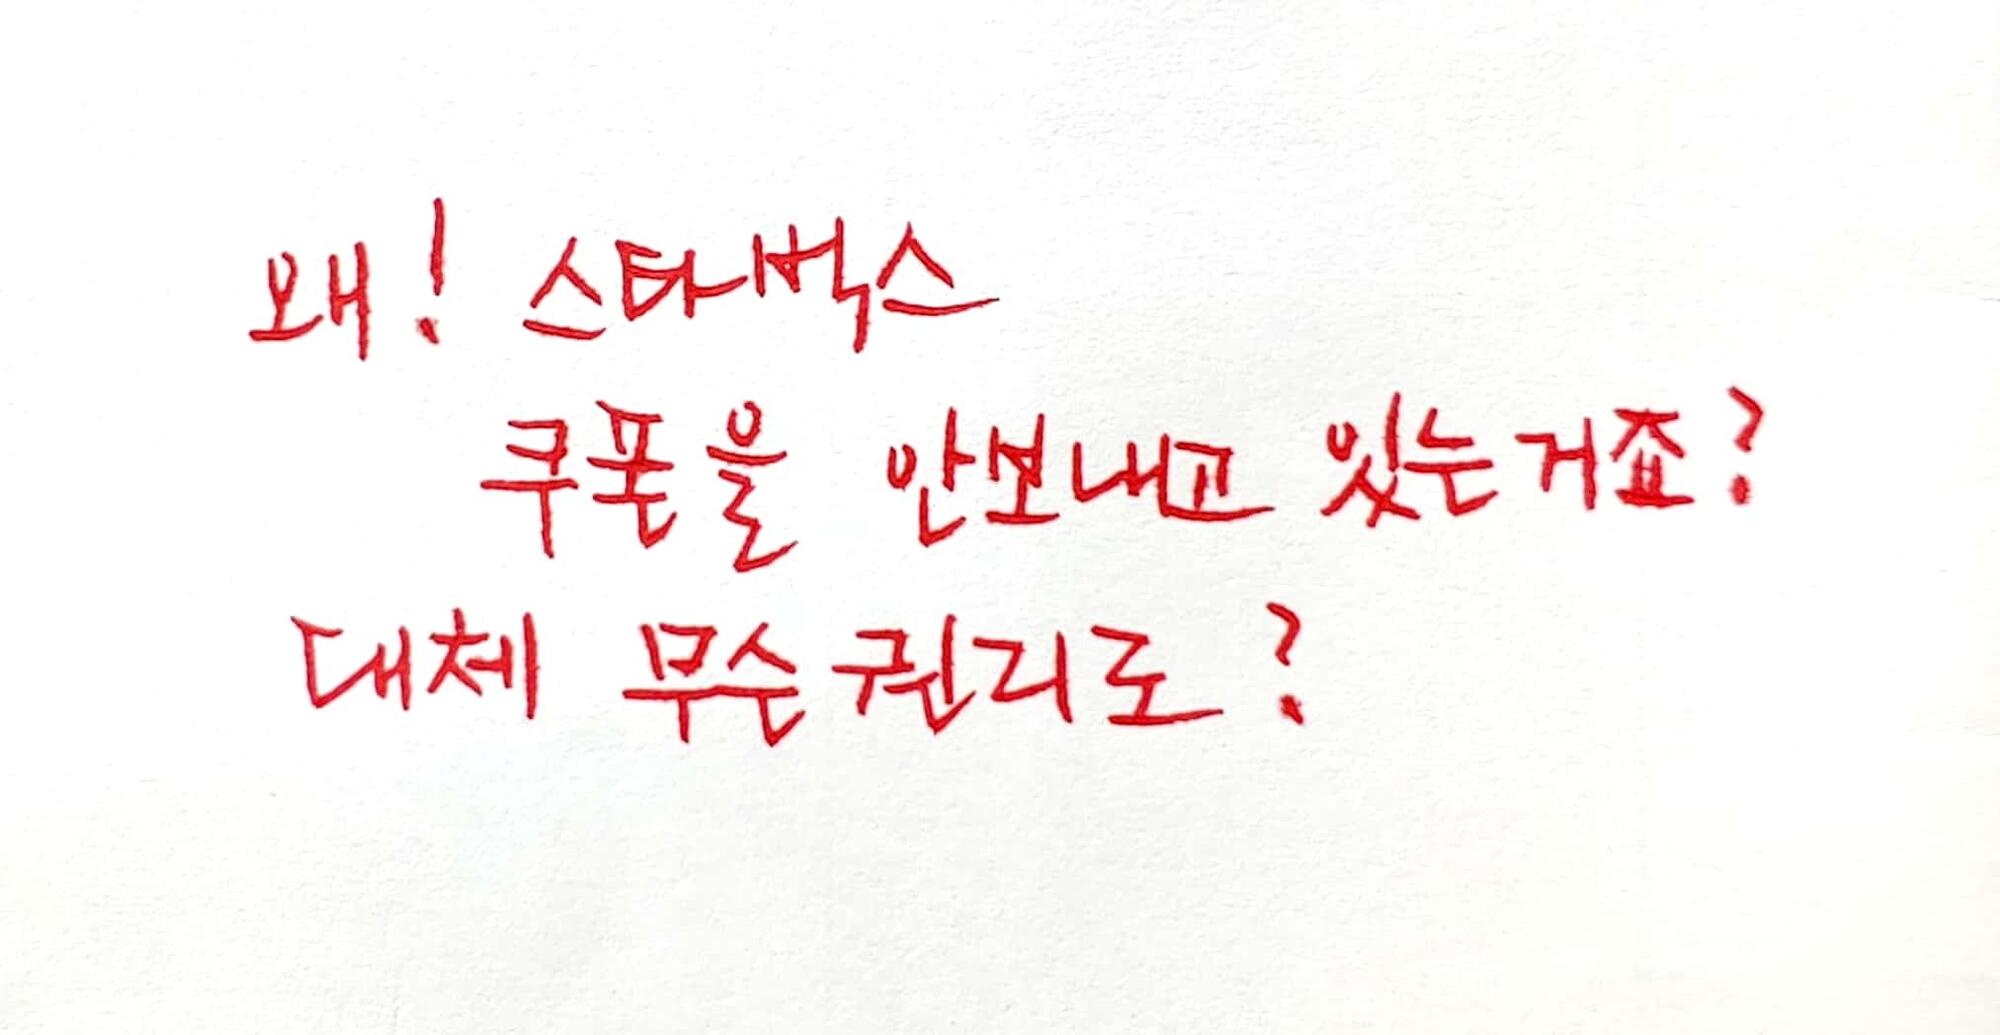 왜! 스타벅스
쿠폰을 안보내고 있는거죠?
대체 무슨권리로?